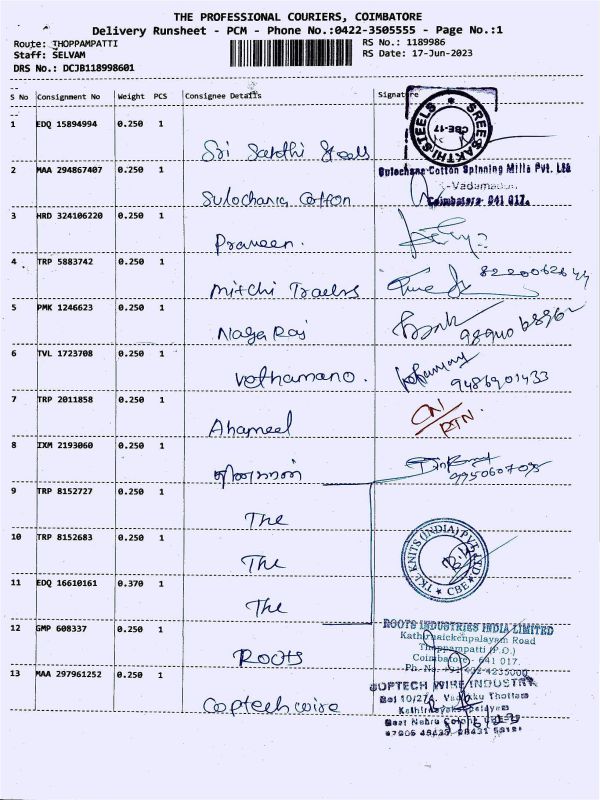 THE PROFESSIONAL COURIERS, COIMBATORE
Delivery Runsheet - PCM - Phone No.:0422-3505555 - Page No.:1
Route: THOPPAMPATTI
RS No.: 1189986
Staff: SELVAM
RS Date: 17-Jun-2023
DRS No.: DCJB118998601
S No Consignment No Weight PCS Consignee Details Signature
1 EDQ 15894994 0.250 1
Sri Sakthi Steels
SREE SAKTHI STEELS
CBE-17
2 MAA 294867407 0.250 1
Sulochana Cotton Spinning Mills Pvt. Ltd
Coimbatore 641 017.
Sulochana Cotton
3 HRD 324106220 0.250 1
Praveen.
4 TRP 5883742 0.250 1
Mitchi Traders
5 PMK 1246623 0.250 1
Naga Raj
6 TVL 1723708 0.250 1
9486901433
7 TRP 2011858 0.250 1
Ahameel
CN/
RTN.
8 IXM 2193060 0.250 1
9 TRP 8152727 0.250 1
The
10 TRP 8152683 0.250 1
The
TKL KNITS (INDIA) PVT LTD
CBE
11 EDQ 16610161 0.370 1
The
12 GMP 608337 0.250 1
Roots
ROOTS INDUSTRIES INDIA LIMITED
Kathirnaickenpalayam Road
Thoppampatti (P.O.)
Coimbatore - 641 017.
Ph. No. +91 422-4235000
13 MAA 297961252 0.250 1
Coptech wire
COPTECH WIRE INDUSTRY